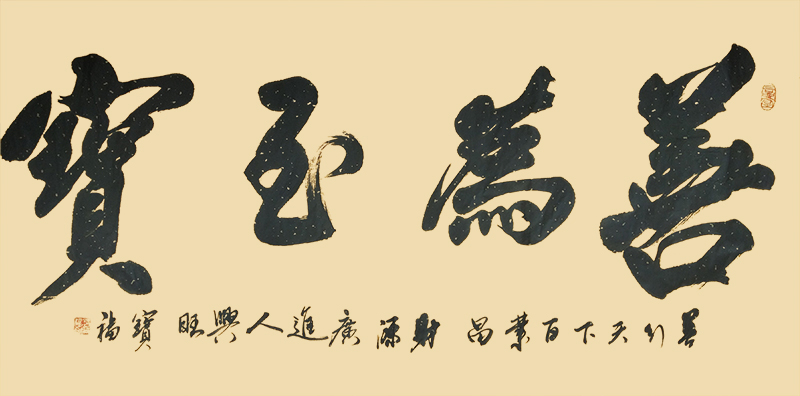 善為至寶
善行天下百業昌財源廣進人興旺寶福